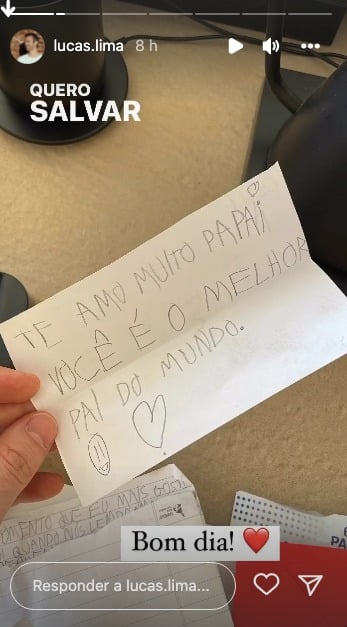 lucas.lima 8 h
QUERO
SALVAR
TE AMO MUITO PAPAI
VOCÊ É O MELHOR
PAI DO MUNDO.
QUE EU MAIS
QUANDO
Bom dia!
Responder a lucas.lima...